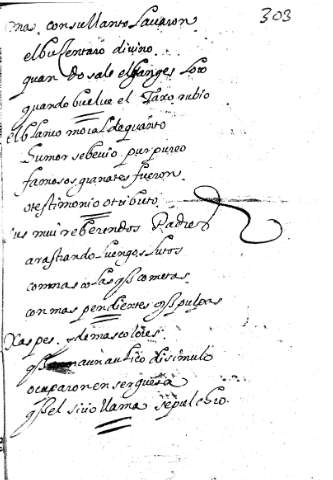 303
mas. con su llanto Lavaron
el bustentaro divino
quan do sale el ganges Loro
quando buelve el Taxo rubio
el blanco moral de quanto
humor se bevio purpureo
famosos granates fueron
o testimonio o tributo
sus mui reberendos Padres
arastrando luengos lutos
con mas colas qss cometas
con mas pendientes qss pulpos
Xaspes. y demas colores
qss aun autico disimulo
ocuparon en ser guesa
qss el sirio llama sepulchro.